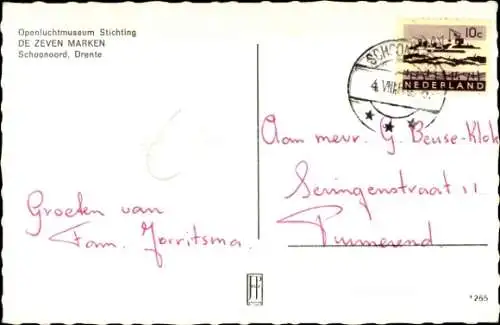 Openluchtmuseum Stichting
DE ZEVEN MARKEN
Schoonoord, Drente
10c
NEDERLAND
SCHOO
4 VIII
Aan mevr. G. Beuse-Klok
Seringenstraat 11
Purmerend
Groeten van
Fam. Jorritsma.
1265